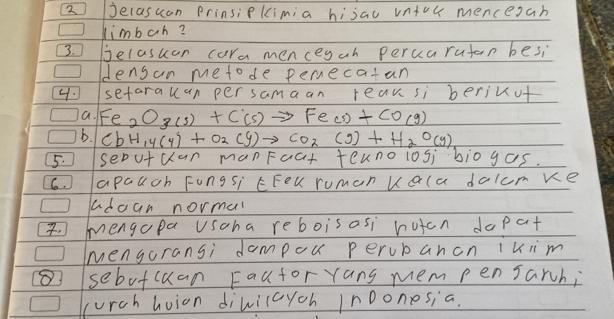 2 jelaskan Prinsip kimia hijau untuk mencegah
limbah?
3. jelaskan cara mencegah perkaratan besi
dengan metode pemecatan
4. setarakan persamaan reaksi berikut
a. Fe2O3(s) + C(s) → Fe(s) + CO(g)
b. C6H14(g) + O2(g) → CO2(g) + H2O(g)
5. sebutkan manfaat teknologi biogas.
6. apakah fungsi Efek rumah kaca dalam ke
adaan normal
7. mengapa usaha reboisasi hutan dapat
mengurangi dampak perubahan iklim
8 sebutkan Faktor yang mempengaruhi
curah hujan diwilayah Indonesia.